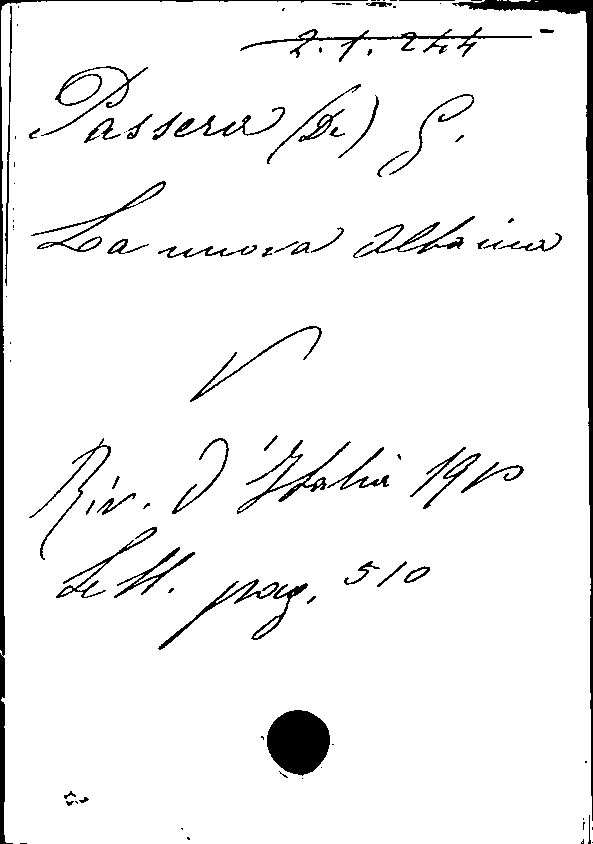 2.1.244
Passera (De) G.
La nuova
V
Riv. d'Italia 1910
Sett. pag. 510